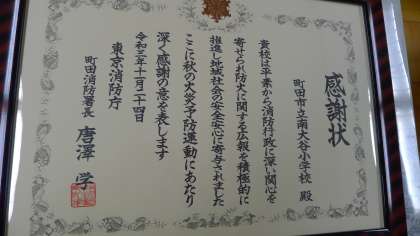 感謝状
町田市立南大谷小学校 殿
貴校は平素から消防行政に深い関心を
寄せられ防火に関する広報を積極的に
推進し地域社会の安全安心に寄与されました
ここに秋の火災予防運動にあたり
深く感謝の意を表します
令和三年十一月二十四日
東京消防庁
町田消防署長 唐澤 学